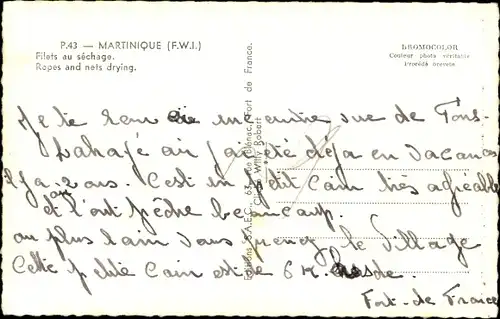 P.43 — MARTINIQUE (F.W.I.)
Filets au séchage.
Ropes and nets drying.
BROMOCOLOR
Couleur photo véritable
Procédé breveté
Je te en encontre vue de Fonds
Lahayé j'ai été déjà en vacances
il y a 2 ans. C'est un petit coin très agréable
où et l'ont pêche beaucoup.
au plus loin dans le village
Cette petite coin est de 6 de
Fort-de-France
Editions S.A.E.C., 63, Blénac, Fort de France.
Cliché Willy Robert